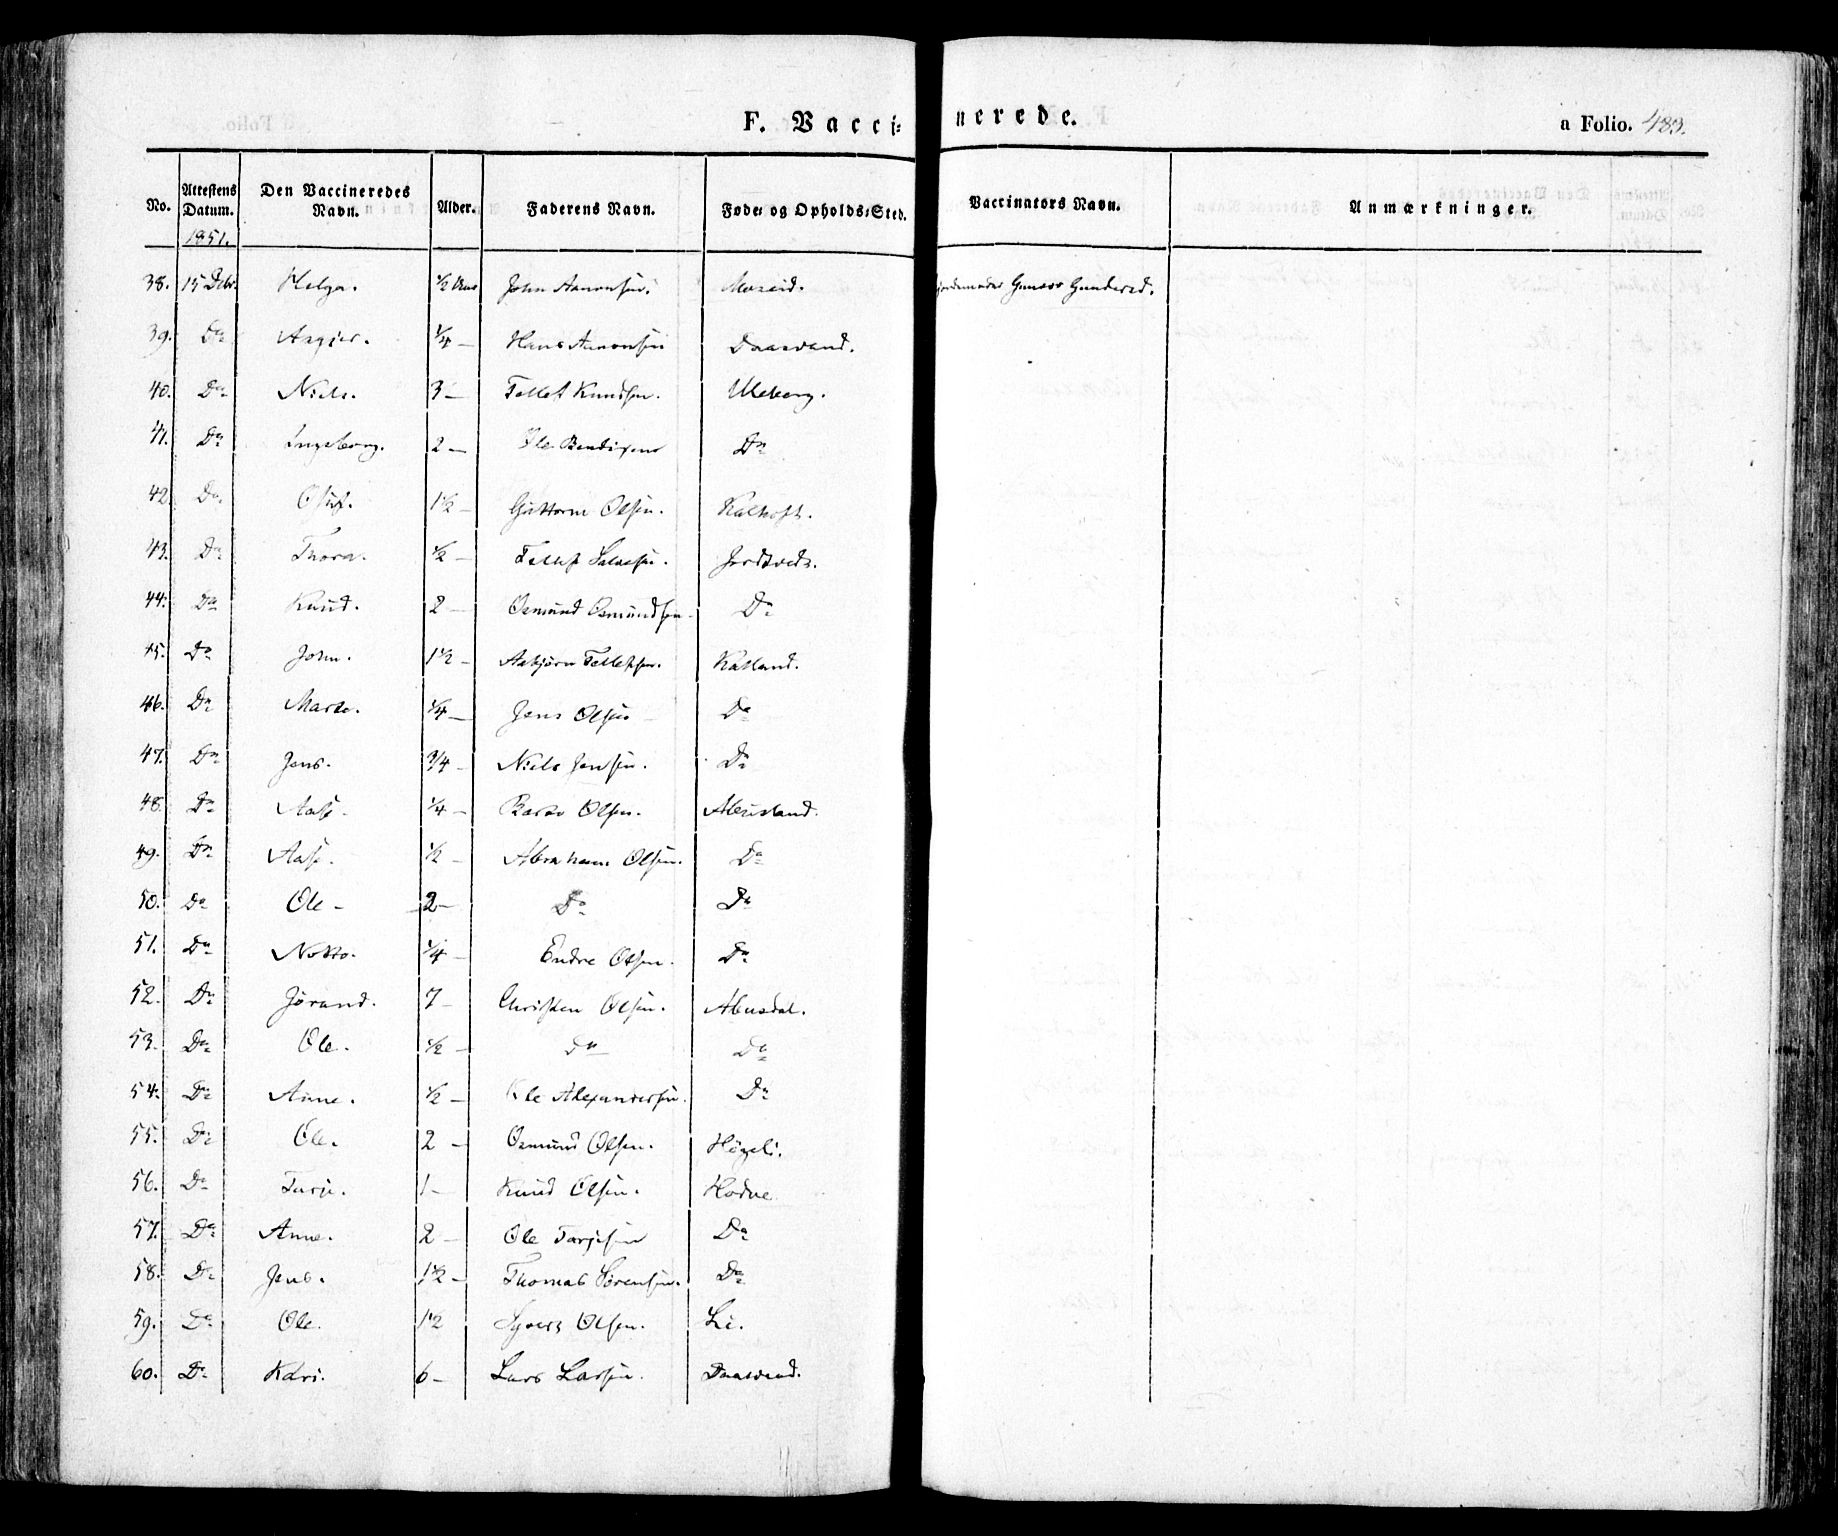 F. Vaccinerede.
a Folio. 483.
No. Attestens Datum. Den Vaccineredes Navn. Alder. Faderens Navn. Føde- og Opholds-Sted. Vaccinators Navn. Anmærkninger.
1851.
38. 15 Debr. Helga. ½ Aar John Aanonsen. Moseid. Gunvor Gundersd.
39. Do Asgjer. ¼ — Hans Aanonsen Daasvand.
40. Do Niels. 3 — Tellef Knudsen. Uleberg.
41. Do Ingeborg. 2 — Ole Bendixsen Do
42. Do Oluf. 1½ — Guttorm Olsen.
43. Do Thora. ½ — Tellef Salvesen. Jordtveit.
44. Do Knud. 2 — Osmund Osmundsen Do
45. Do John. 1½ — Asbjørn Tellefsen. Katland.
46. Do Marte. ¼ — Jens Olsen Do
47. Do Jens. 3/4 — Niels Jensen. Do
48. Do Aase. ¼ — Olsen. Abusland.
49. Do Aase. ½ — Abraham Olsen. Do
50. Do Ole — 2 — Do Do
51. Do ¼ — Endre Olsen. Do
52. Do Jørand. 7 — Christen Olsen. Abusdal.
53. Do Ole. ½ — Do Do
54. Do Anne. ½ — Ole Alexandersen. Do
55. Do Ole. 2 — Osmund Olsen. Høgeli.
56. Do Tarje. 1 — Knud Olsen. Hodne
57. Do Anne. 2 — Ole Tarjesen Do
58. Do Jens. 1½ — Thomas Sørensen. Do
59. Do Ole. 1½ Sjvert Olsen. Li.
60. Do Kari. 6 — Lars Larsen. Daasvand.